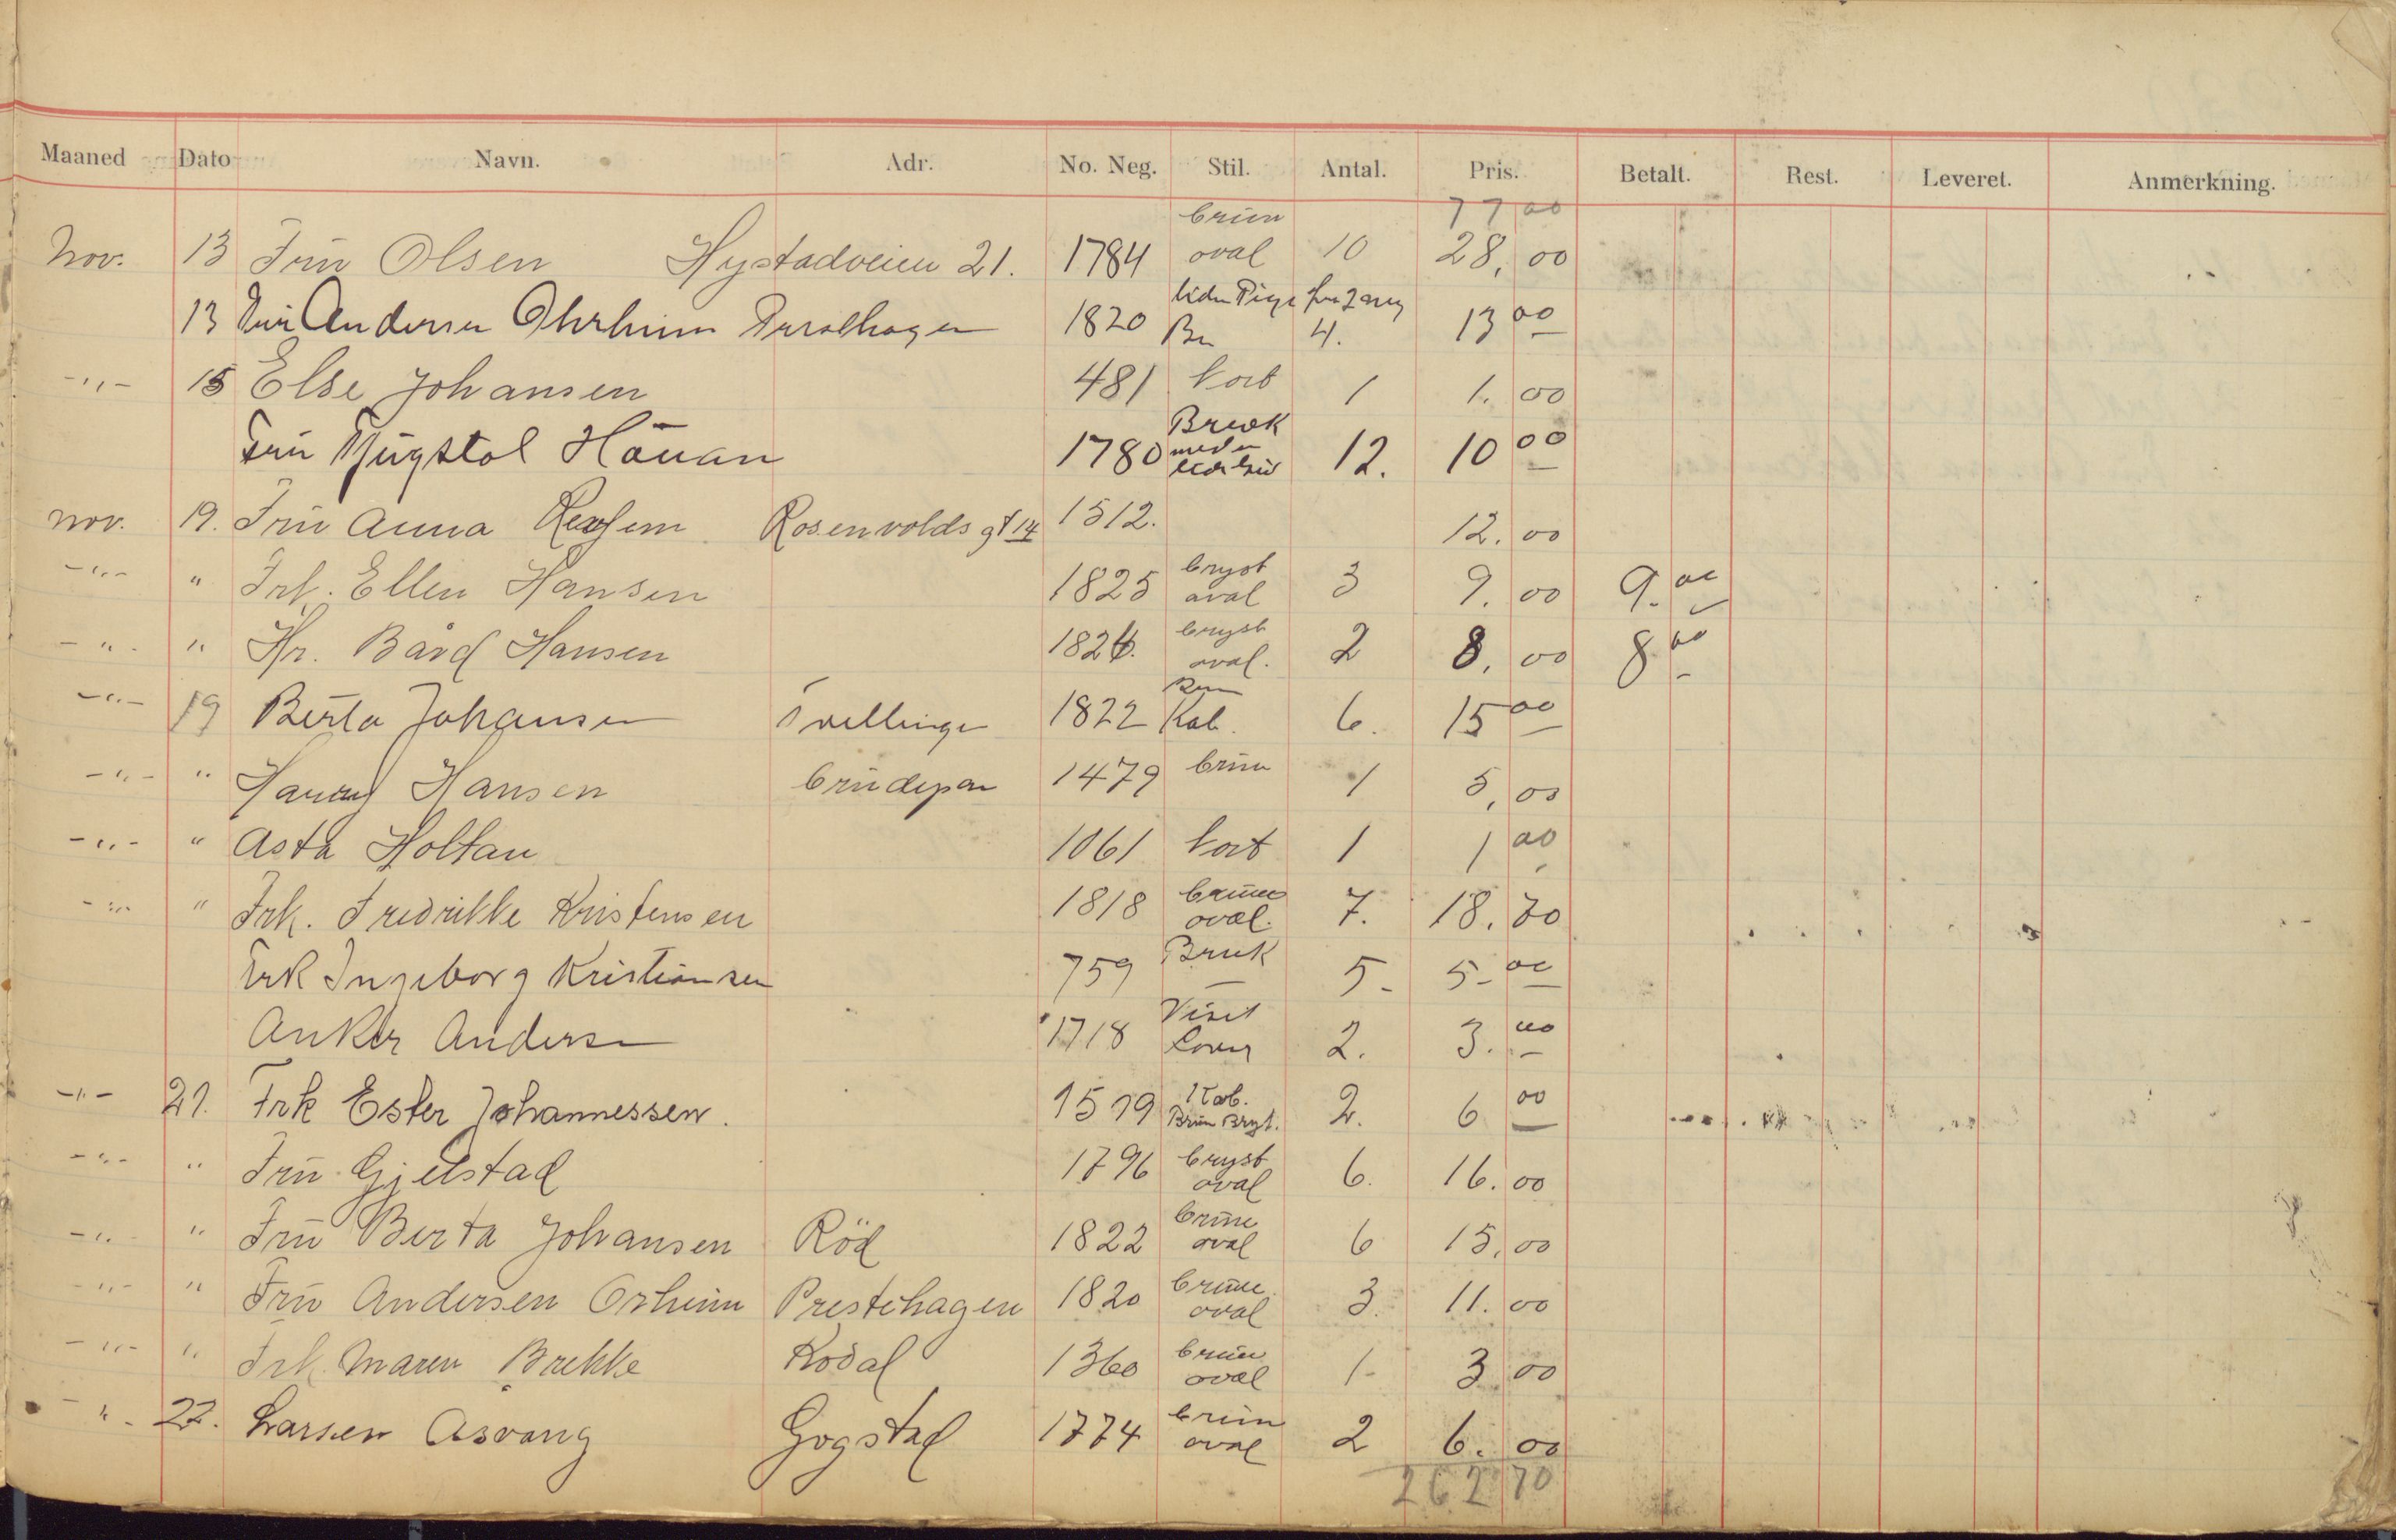 Maaned Dato Navn. Adr. No. Neg. Stil. Antal. Pris. Betalt. Rest. Leveret. Anmerkning.
77 00
Nov. 13 Frü Olsen Hystadveien 21. 1784 brün oval 10 28, 00
13 Andersen 1820 Br 4. 13 00
-"- 15 Else Johansen 481 kort 1 1. 00
Frü Hauan 1780 12. 10 00
nov. 19. Frü Anna Rosenvolds gt 14 1512. 12. 00
-"- " Frk. Ellen Hansen 1825 bryst oval 3 9. 00 9. 00
-"- " Hr. Bård Hansen 1824. bryst oval. 2 8. 00 8 00
-"- 19 Berta Johansen Tvillinger 1822 Kab. 6. 15 00
-"- " Harry Hansen brüdepar 1479 brün 1 5, 00
-"- " Asta Holtan 1061 kort 1 1 00
-"- " Frk. Fredrikke Kristensen 1818 brün oval. 7. 18. 70
Frk Ingeborg Kristiansen 759 Bruk 5- 5- 00
Anker Andersen 1718 Visit 2. 3. 00
-"- 21. Frk Ester Johannessen. 1519 Kab. Brün Bryt. 2. 6 00
-"- " Frü Gjelstad 1796 bryst oval 6. 16. 00
-"- " Frü Berta Johansen Röd 1822 brün oval 6 15, 00
-"- " Frü Andersen Orheim Prestehagen 1820 brün oval 3. 11. 00
-"- " Frk. Maren Brekke Kodal 1360 brün oval 1- 3 00
-"- 22. Larsen Asvang Gogstad 1774 brün oval 2 6. 00
262 70